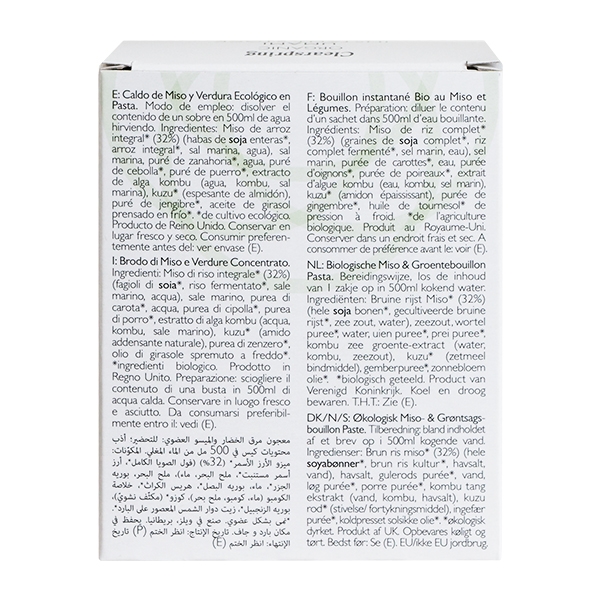 Clearspring
ORGANIC
E: Caldo de Miso y Verdura Ecológico en
Pasta. Modo de empleo: disolver el
contenido de un sobre en 500ml de agua
hirviendo. Ingredientes: Miso de arroz
integral* (32%) (habas de soja enteras*,
arroz integral*, sal marina, agua), sal
marina, puré de zanahoria*, agua, puré
de cebolla*, puré de puerro*, extracto
de alga kombu (agua, kombu, sal
marina), kuzu* (espesante de almidón),
puré de jengibre*, aceite de girasol
prensado en frío*. *de cultivo ecológico.
Producto de Reino Unido. Conservar en
lugar fresco y seco. Consumir preferen-
temente antes del: ver envase (E).
I: Brodo di Miso e Verdure Concentrato.
Ingredienti: Miso di riso integrale* (32%)
(fagioli di soia*, riso fermentato*, sale
marino, acqua), sale marino, purea di
carota*, acqua, purea di cipolla*, purea
di porro*, estratto di alga kombu (acqua,
kombu, sale marino), kuzu* (amido
addensante naturale), purea di zenzero*,
olio di girasole spremuto a freddo*.
*ingredienti biologico. Prodotto in
Regno Unito. Preparazione: sciogliere il
contenuto di una busta in 500ml di
acqua calda. Conservare in luogo fresco
e asciutto. Da consumarsi preferibil-
mente entro il: vedi (E).
معجون مرق الخضار والميسو العضوي: للتحضير: أذب
محتويات كيس في 500 مل من الماء المغلي. المكوّنات:
ميزو الأرز الأسمر* (32%) (فول الصويا الكامل*، أرز
أسمر مستنبت*، ملح البحر، ماء)، ملح البحر، بوريه
الجزر*، ماء، بوريه البصل*، هريس الكراث*، خلاصة
الكومبو (ماء، كومبو، ملح بحر)، كوزو* (مكثّف نشوي)،
بوريه الزنجبيل*، زيت دوار الشمس المعصور على البارد*.
*نمى بشكل عضوي. صنع في ويلز، بريطانيا. يحفظ في
مكان بارد و جاف. تاريخ الإنتاج: انظر الختم (P) تاريخ
الإنتهاء: انظر الختم (E)
F: Bouillon instantané Bio au Miso et
Légumes. Préparation: diluer le contenu
d'un sachet dans 500ml d'eau bouillante.
Ingrédients: Miso de riz complet*
(32%) (graines de soja complet*, riz
complet fermenté*, sel marin, eau), sel
marin, purée de carottes*, eau, purée
d'oignons*, purée de poireaux*, extrait
d'algue kombu (eau, kombu, sel marin),
kuzu* (amidon épaississant), purée de
gingembre*, huile de tournesol* de
pression à froid. *de l'agriculture
biologique. Produit au Royaume-Uni.
Conservez dans un endroit frais et sec. A
consommer de préférence avant le: voir (E).
NL: Biologische Miso & Groentebouillon
Pasta. Bereidingswijze, los de inhoud
van 1 zakje op in 500ml kokend water.
Ingrediënten: Bruine rijst Miso* (32%)
(hele soja bonen*, gecultiveerde bruine
rijst*, zee zout, water), zeezout, wortel
puree*, water, uien puree*, prei puree*,
kombu zee groente-extract (water,
kombu, zeezout), kuzu* (zetmeel
bindmiddel), gemberpuree*, zonnebloem
olie*. *biologisch geteeld. Product van
Verenigd Koninkrijk. Koel en droog
bewaren. T.H.T.: Zie (E).
DK/N/S: Økologisk Miso- & Grøntsags-
bouillon Paste. Tilberedning: bland indholdet
af et brev op i 500ml kogende vand.
Ingredienser: Brun ris miso* (32%) (hele
soyabønner*, brun ris kultur*, havsalt,
vand), havsalt, gulerods purée*, vand,
løg purée*, porre purée*, kombu tang
ekstrakt (vand, kombu, havsalt), kuzu
rod* (stivelse/fortykningsmiddel), ingefær
purée*, koldpresset solsikke olie*. *økologisk
dyrket. Produkt af UK. Opbevares køligt og
tørt. Bedst før: Se (E). EU/ikke EU jordbrug.